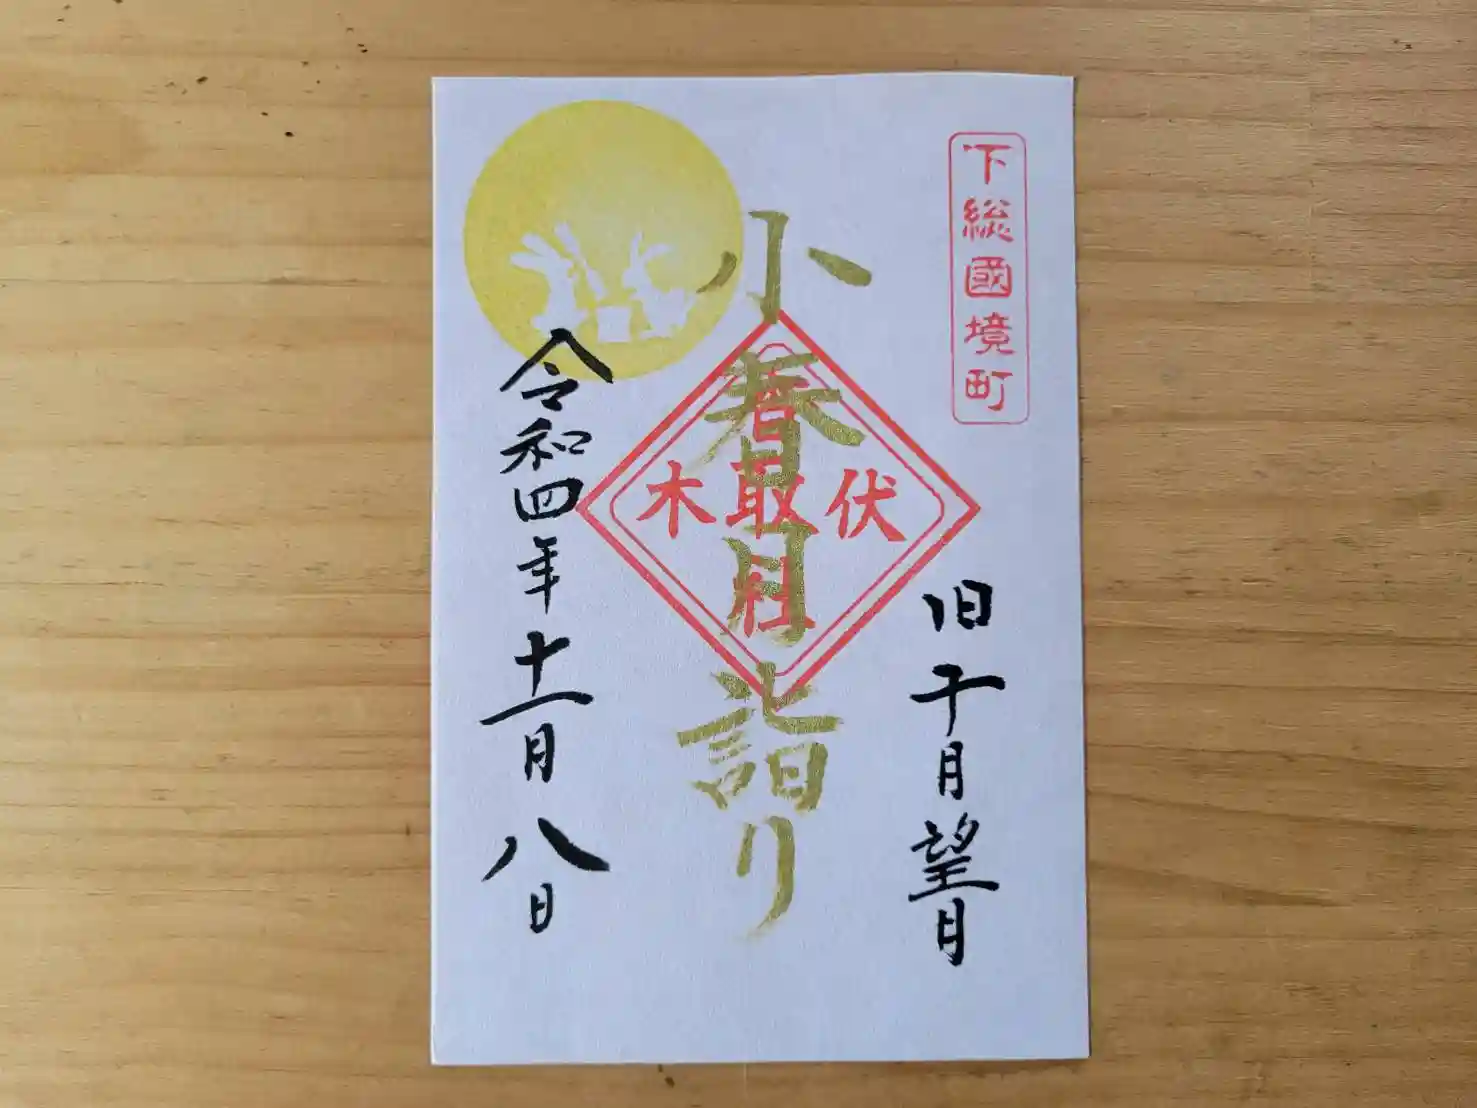 下総國境町
旧十月望月
小春月詣り
伏木
香取社
令和四年十一月八日